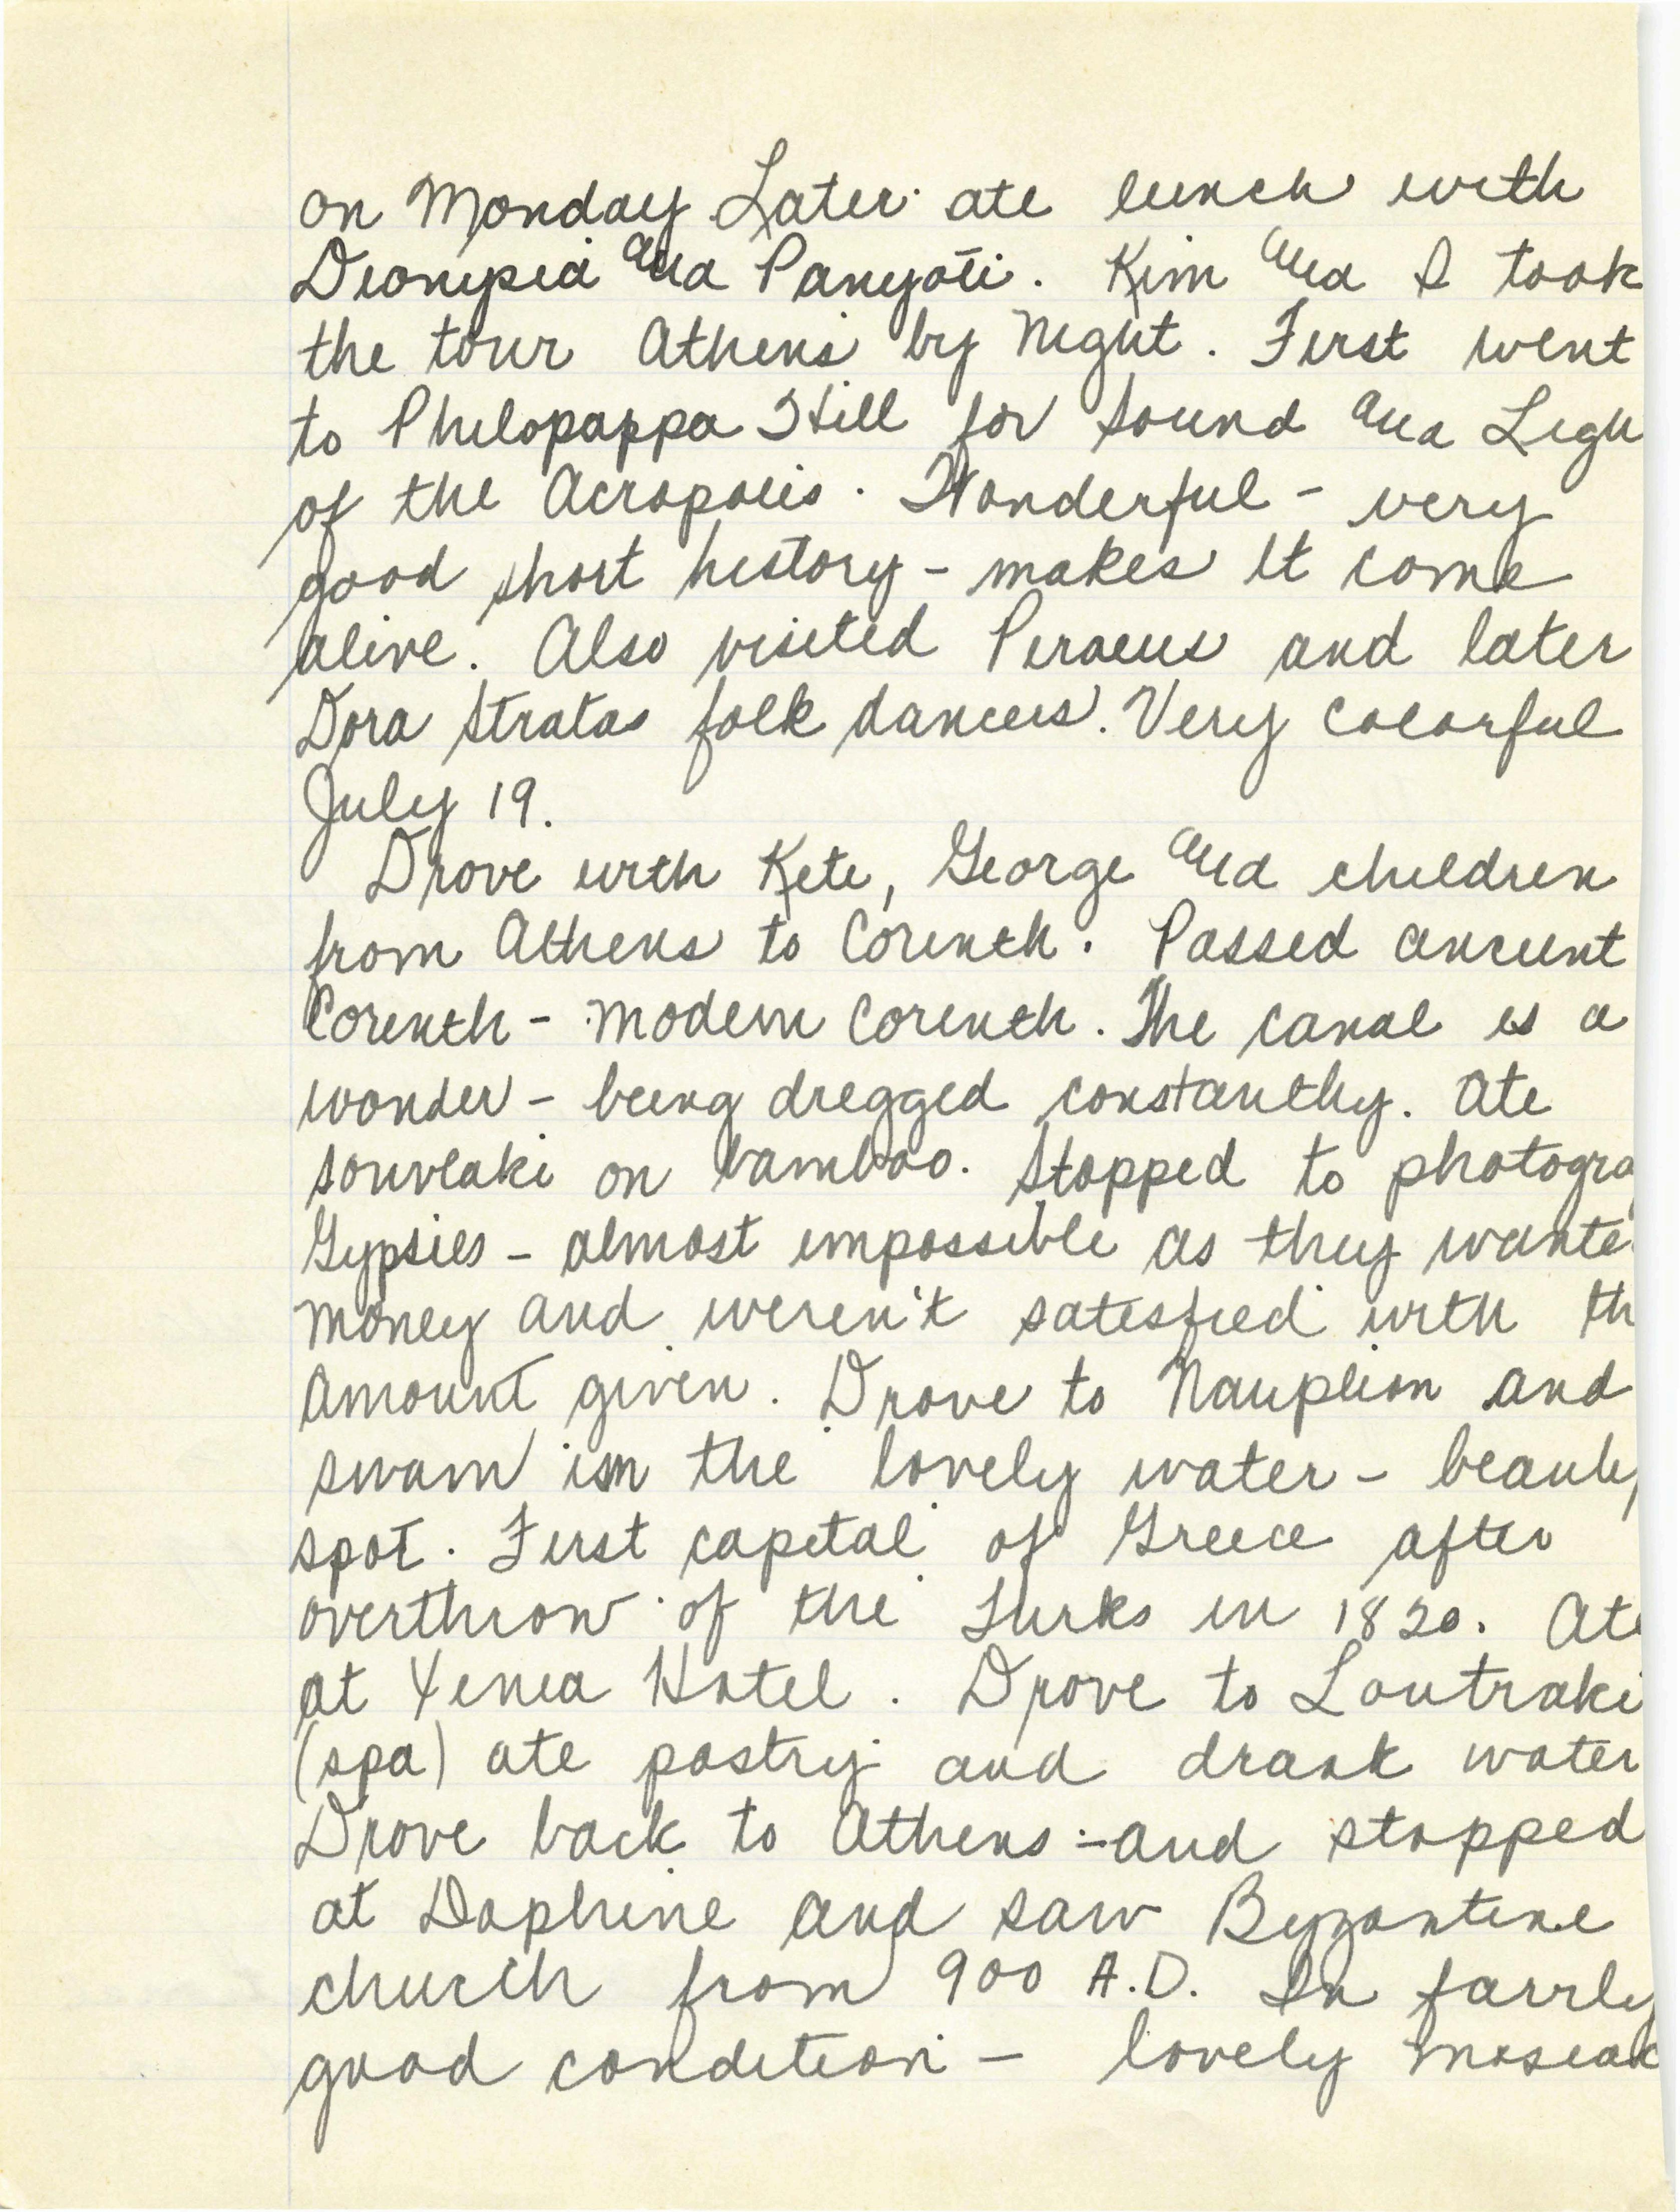 on Monday Later ate lunch with
Dionysia and Panyoti. Kim and I took
the tour Athens by Night. First went
to Philopappa Hill for Sound and Ligh
of the Acropolis. Wonderful - very
good short history - makes it come
alive. Also visited Piraeus and later
Dora Stratas folk dancers. Very colorful
July 19.
Drove with Kete, George and children
from Athens to Corinth. Passed ancient
Corinth - modern Corinth. The canal is a
wonder - being dregged constantly. Ate
souvlaki on bamboo. Stopped to photogra
Gypsies - almost impossible as they wante
money and weren't satisfied with th
amount given. Drove to Nauplion and
swam in the lovely water -
spot. First capital of Greece after
overthrow of the Turks in 1820. Ate
at Xenia Hotel. Drove to Loutraki
(spa) ate pastry and drank water
Drove back to Athens - and stopped
at Daphine and saw Byzantine
church from 900 A.D. In fairly
good condition - lovely mosiac